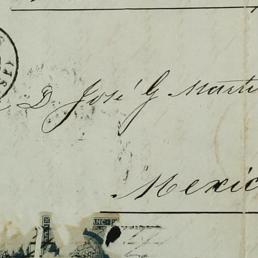 D. José G Marti
Mexic